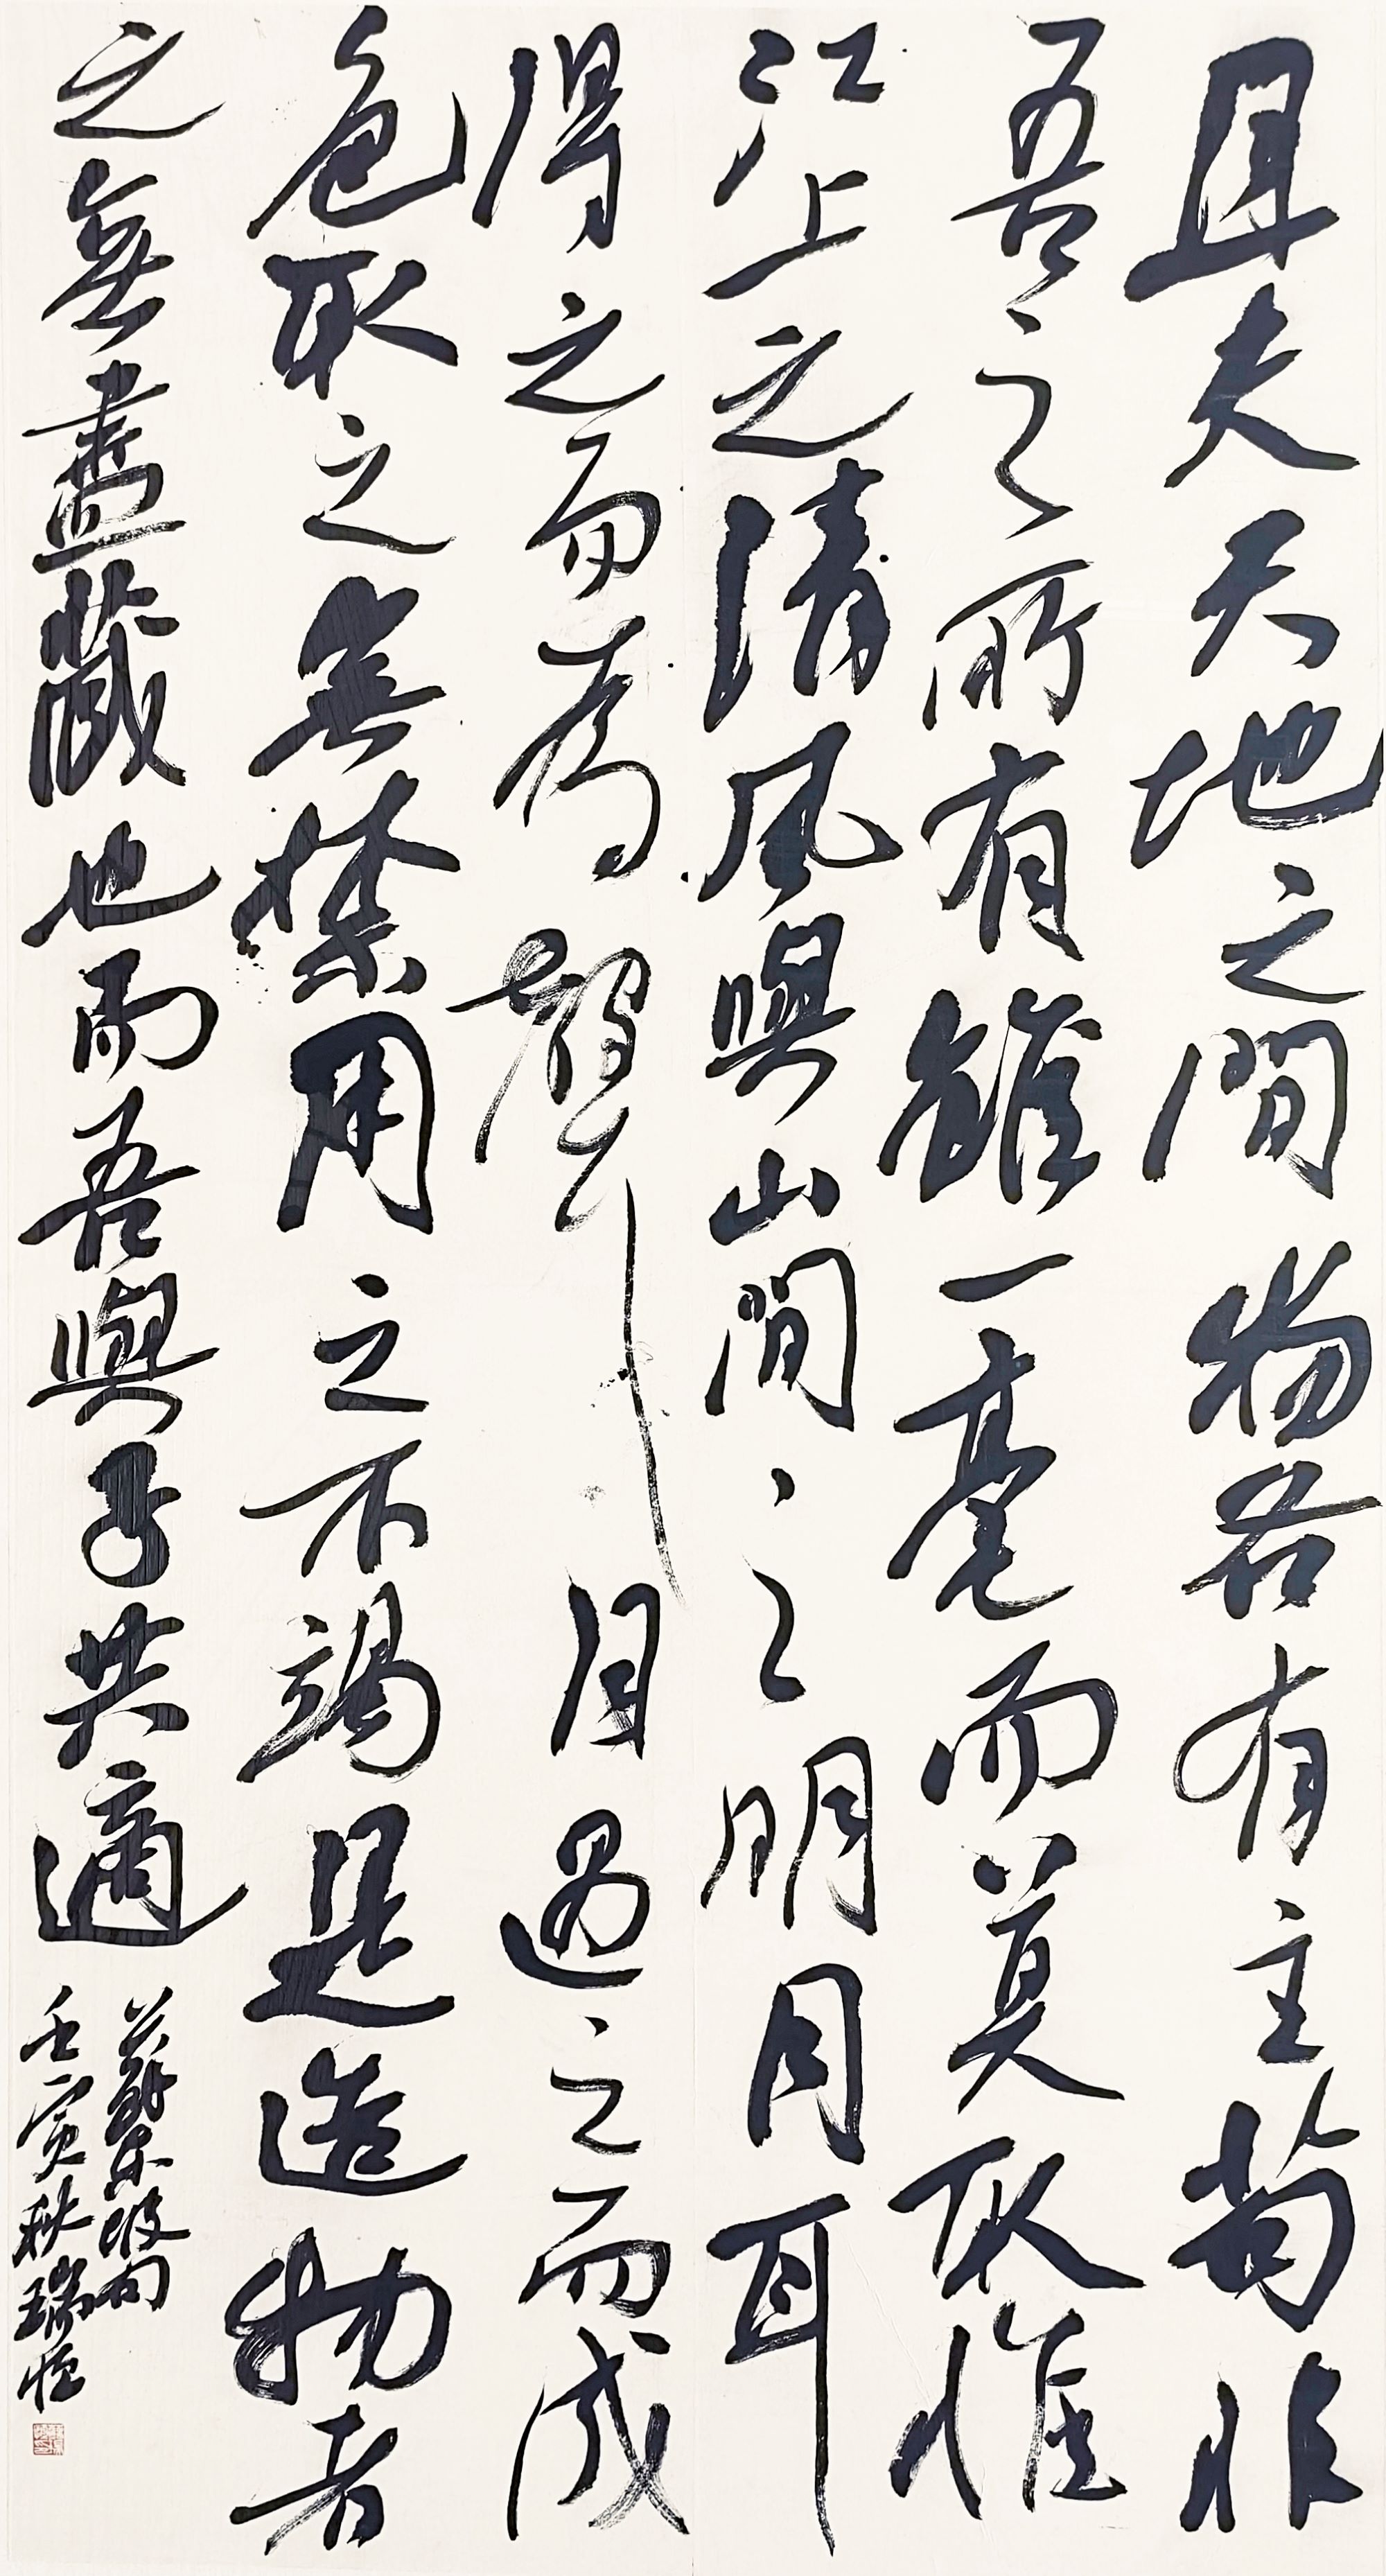 且夫天地之間物各有主苟非
吾之所有雖一毫而莫取惟
江上之清風與山間之明月耳
得之而為聲目遇之而成
色取之無禁用之不竭是造物者
之無盡藏也而吾與子共適
蘇東坡句
壬寅秋瑞恒